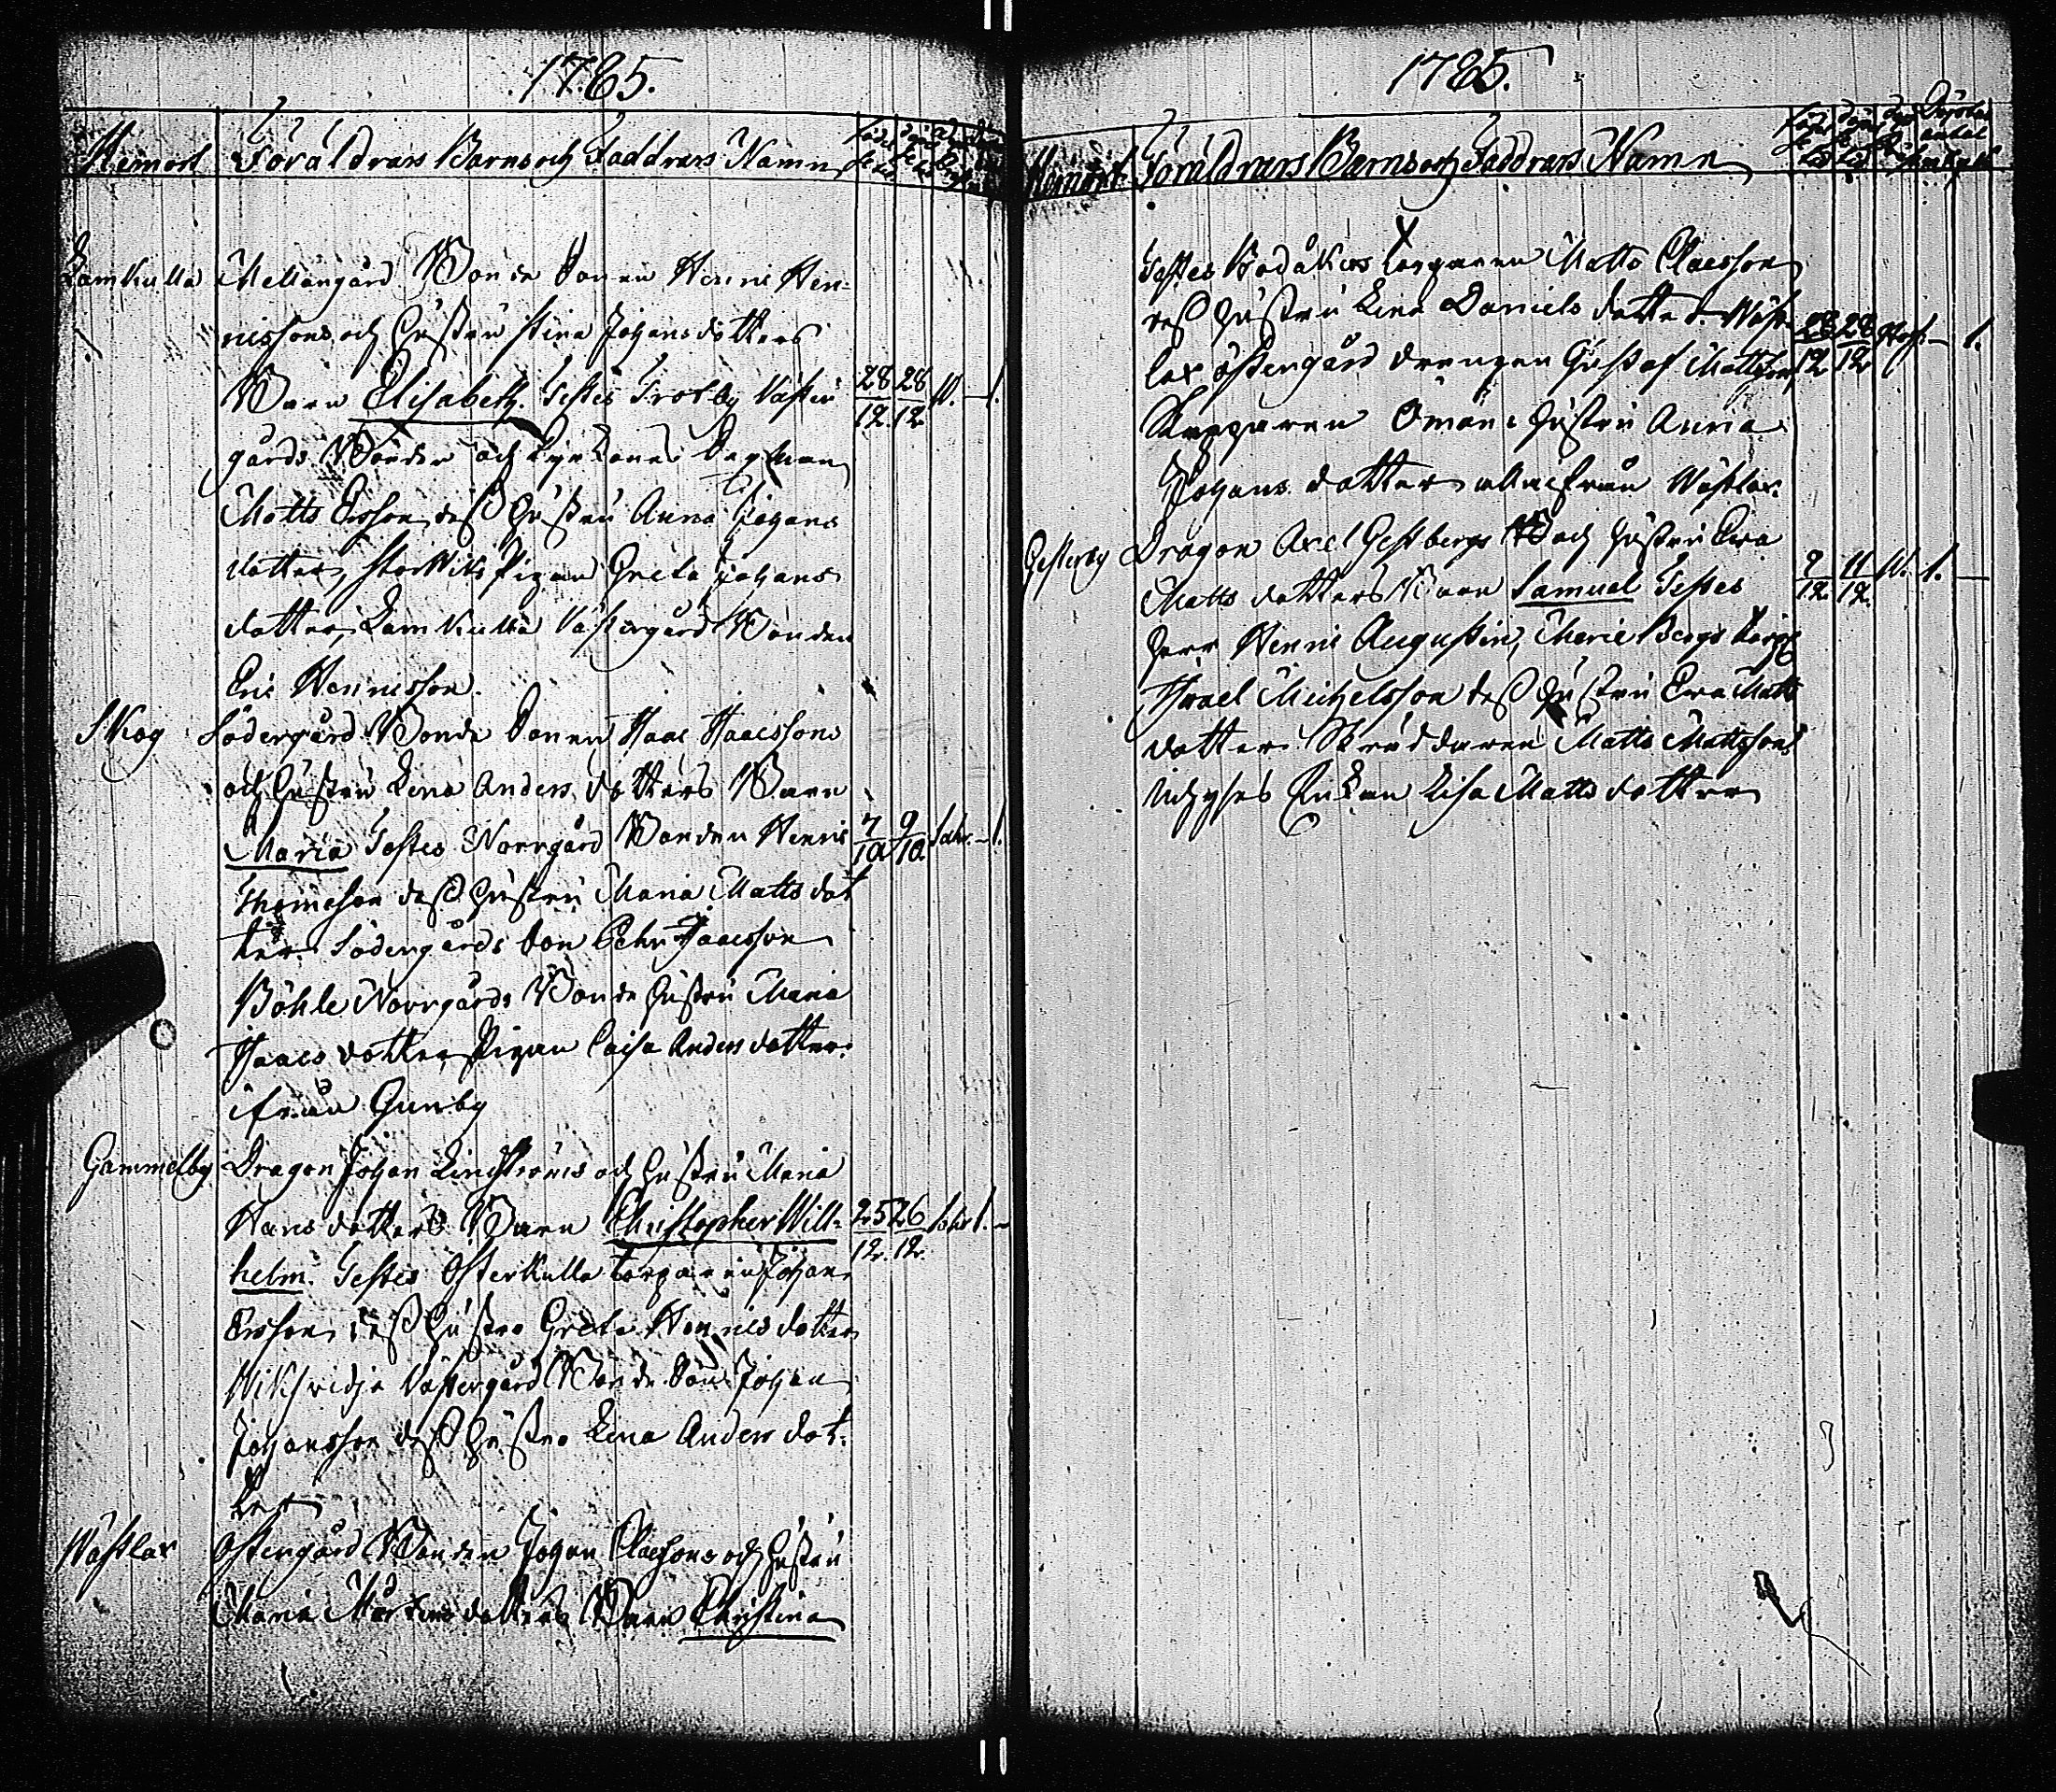 1785.
Hemort Föräldrars Barns och Faddrars Namn
Lamkulla Mellangård Bonde Sonen Henric Hen-
ricssons och Hustru Stina Johansdotters
Barn Elisabeth. Testes Trotby Väster 28/12. 28/12. W. - 1.
gårds Bonde och Kyrkones
Matts Ersson dess Hustru Anna Johans
dotter, StorWiks Pigan Greta Johans
dotter, Lamkulla Västergård Bonden
Eric Henricsson.
Skog Södergård Bonde Sonen Isaac Isaacssons
och Hustru Lena Anders dotters Barn
Maria Testes Norrgård Bonden Henric 7/10 9/10 - 1.
Thomasson dess Hustru Maria Matts dot
ter. Södergårds Son Pehr Isaacsson
Böhle Norrgårds Bonde Hustru Maria
Isaacs dotter Pigan Caisa Anders dotter.
ifrån Gunby
Gammelby Dragon Johan Lindströms och Hustru Maria
Hans dotters Barn Christopher Will- 25/12. 26/12. 1. -
helm. Testes Österkulla torparen Johan
Ersson, dess Hustro Greta Henrics dotter
Wiksvidja Västergård Bonde Son Johan
Johansson dess Hustro Lena Anders dot-
ter
Wästlax Östergård Bonden Johan Claessons och Hustru
Maria Mårtens dotters Barn Christina
1785.
Hemort Föräldrars Barns och Faddrars Namn
Testes Bodåkers torparen Matts Claesson
dess Hustru Lena Daniels dotter. Wäst- 28/12 28/12 - 1.
lax östergård drengen Gustaf Mattsson
Skepparen Öman Hustru Anna
Johans dotter alla ifrån Wästlax.
Gesterby Dragon Axel Gestbergs och Hustru Ewa
Matts dotters Barn Samuel Testes 9/12. 11/12. W. 1. -
Herr Henric Augustin, Marie Bergs
Israel Michelsson dess Hustru Ewa Matts
dotter. Skräddaren Matts Mattssons
Enkan Lisa Matts dotter